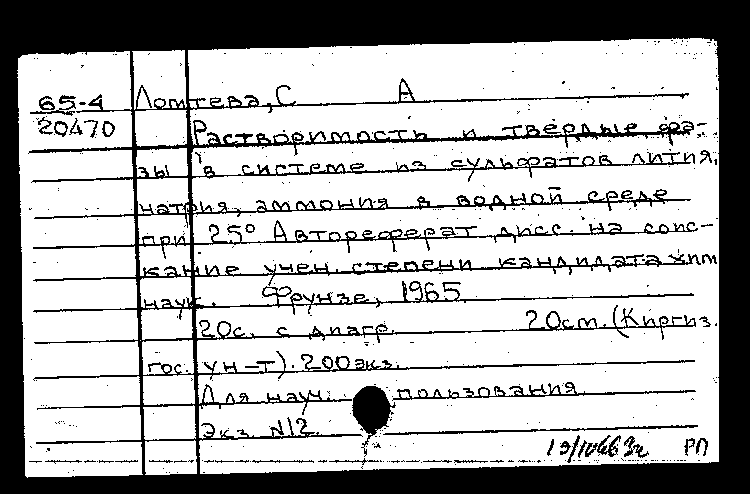 65-4 Ломтева, С А
20470 Растворимость и твердые фа-
зы в системе из сульфатов лития,
натрия, аммония в водной среде
при 25° Автореферат дисс. на соис-
кание учен. степени кандидата хим
наук. Фрунзе, 1965.
20с. с диагр. 20см. (Киргиз.
гос. ун-т). 200экз.
Для науч. пользования
Экз. №12.
РП